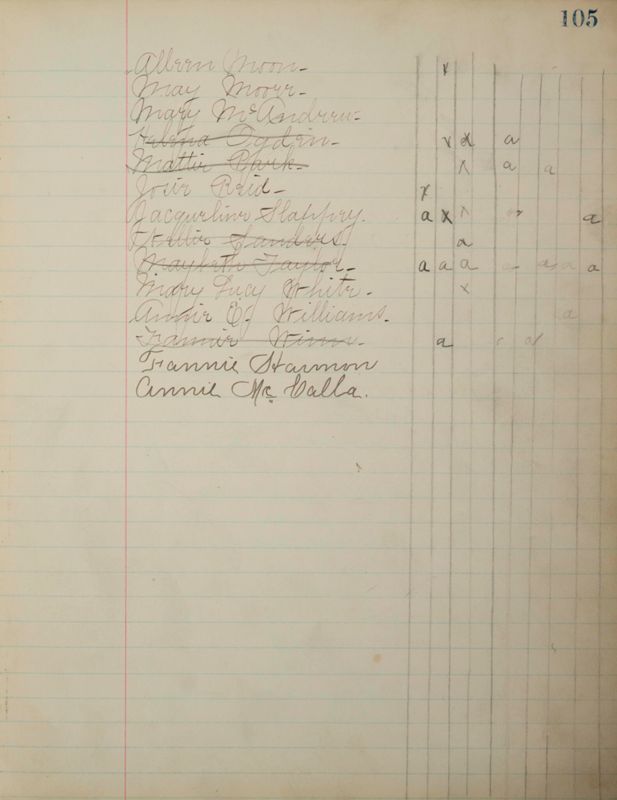 105
Alleen Moon - x
May Moore -
Mary McAndrew -
Ogden - v x a
Mattie Park - ^ a a
Josie Reid - x
Jacqueline Slappey. a x ^ a
Hollie Sanders. a
Maybeth Taylor - a a a a a a
Mary Lucy White - x
Annie E. Williams. a
Fannie Winn. a c a
Fannie Harmon
Annie McCalla.